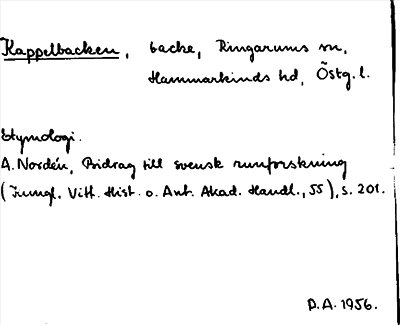 Kappelbacken, backe, Ringarums sn,
Hammarkinds hd, Östg. l.
Etymologi.
A. Nordén, Bidrag till svensk runforskning
(Kungl. Vitt. Hist. o. Ant. Akad. Handl., 55), s. 201.
D.A. 1956.